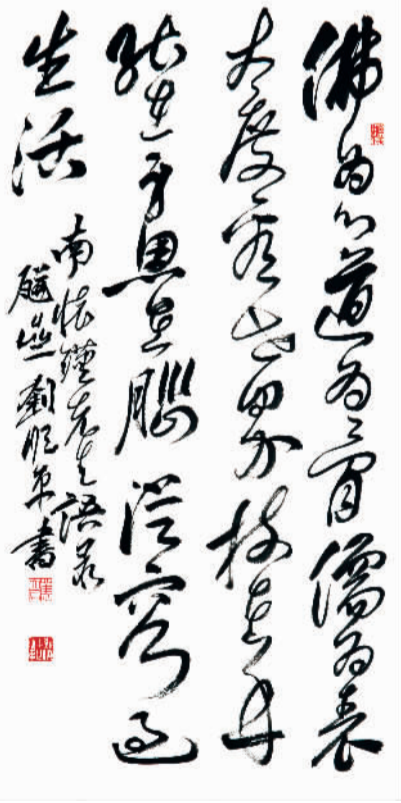 佛為心道為骨儒為表
大度看世界技在手
能在身思在腦從容過
生活
南懷瑾先生語录
劉平書